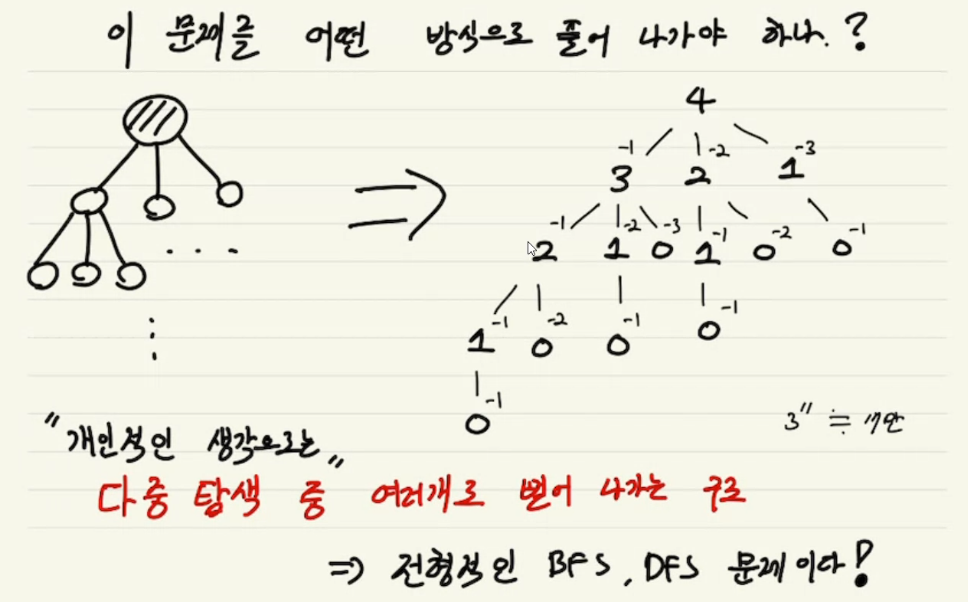 이 문제를 어떤 방식으로 풀어 나가야 하나.?
4
-1 -2 -3
3 2 1
-1 -2 -3 -1 -2 -1
2 1 0 1 0 0
. . .
-1 -2 -1 -1
1 0 0 0
-1
0
3" ≒ 7만
"개인적인 생각으로는"
다중 탐색 중 여러개로 뻗어 나가는 구조
⇒ 전형적인 BFS, DFS 문제이다!